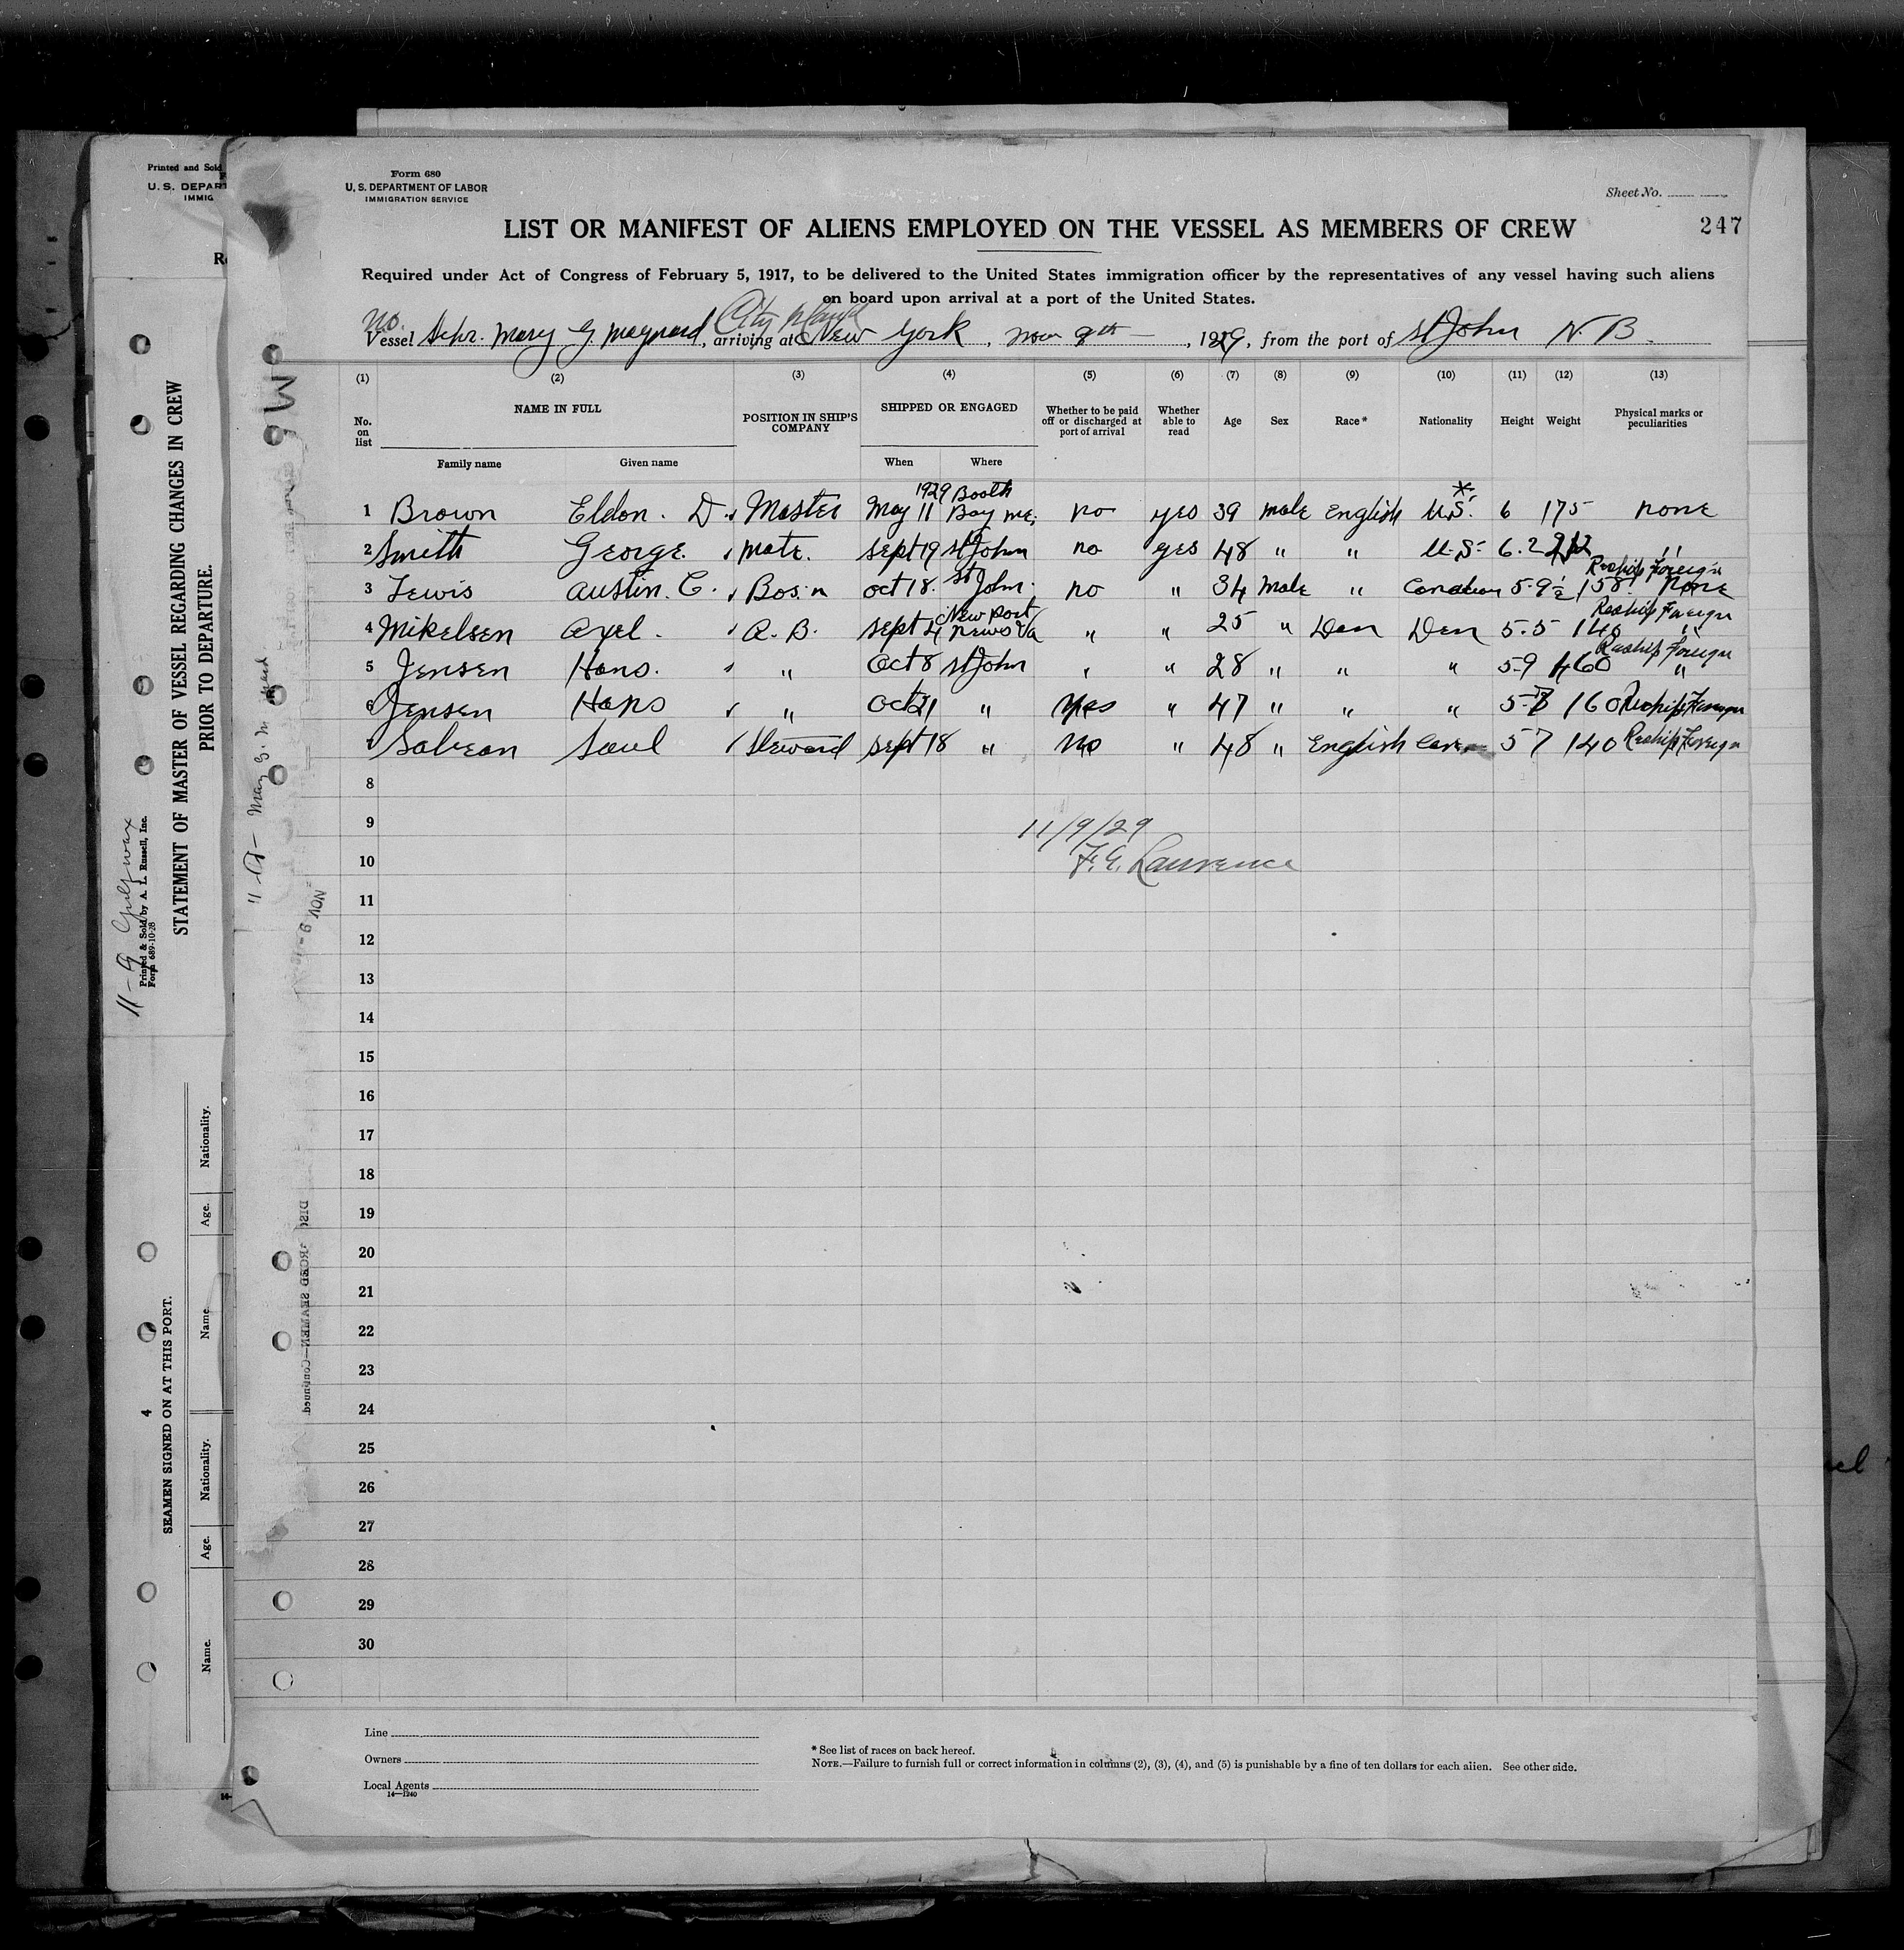 Form 680
U. S. DEPARTMENT OF LABOR
IMMIGRATION SERVICE
Sheet No.
247
LIST OR MANIFEST OF ALIENS EMPLOYED ON THE VESSEL AS MEMBERS OF CREW
Required under Act of Congress of February 5, 1917, to be delivered to the United States immigration officer by the representatives of any vessel having such aliens
on board upon arrival at a port of the United States.
no. City Island
Vessel Schr. Mary G. Maynard, arriving at New York, Nov 9th, 1929, from the port of St John N. B.
(1) (2) (3) (4) (5) (6) (7) (8) (9) (10) (11) (12) (13)
No. on list NAME IN FULL POSITION IN SHIP'S COMPANY SHIPPED OR ENGAGED Whether to be paid off or discharged at port of arrival Whether able to read Age Sex Race* Nationality Height Weight Physical marks or peculiarities
Family name Given name When Where
1 Brown Eldon. D. Master May 11 1929 Booth Bay Me. no yes 39 male English U.S. * 6 175 none
2 Smith George. Mate. Sept 19 St John no yes 48 " " U.S. 6.2 212 "
3 Lewis Austin. C. Bos.n Oct 18. St John. no " 34 Male " Canadian 5-9½ 158 none Reship Foreign
4 Mikelsen Axel. A. B. Sept 4 New port news Va " " 25 " Dan Den 5-5 140 " Reship Foreign
5 Jensen Hans. " Oct 8 St John " " 28 " " " 5-9 160 " Reship Foreign
6 Jensen Hans " Oct 21 " yes " 47 " " " 5-7 160 Reship Foreign
Sabean Saul Steward Sept 18 " no " 48 " English Can 5 7 140 Reship Foreign
8
9
11/9/29
10
F. G. Lawrence
11
12
13
14
15
16
17
18
19
20
21
22
23
24
25
26
27
28
29
30
Line
Owners
Local Agents
14—1240
* See list of races on back hereof.
NOTE.—Failure to furnish full or correct information in columns (2), (3), (4), and (5) is punishable by a fine of ten dollars for each alien. See other side.
Printed and Sold
U. S. DEPAR
IMMIG
STATEMENT OF MASTER OF VESSEL REGARDING CHANGES IN CREW
PRIOR TO DEPARTURE.
Printed & Sold by A. L. Russell, Inc.
Form 689-10-28
4
SEAMEN SIGNED ON AT THIS PORT.
Name. Age. Nationality. Name Age. Nationality.
NOV 9 -